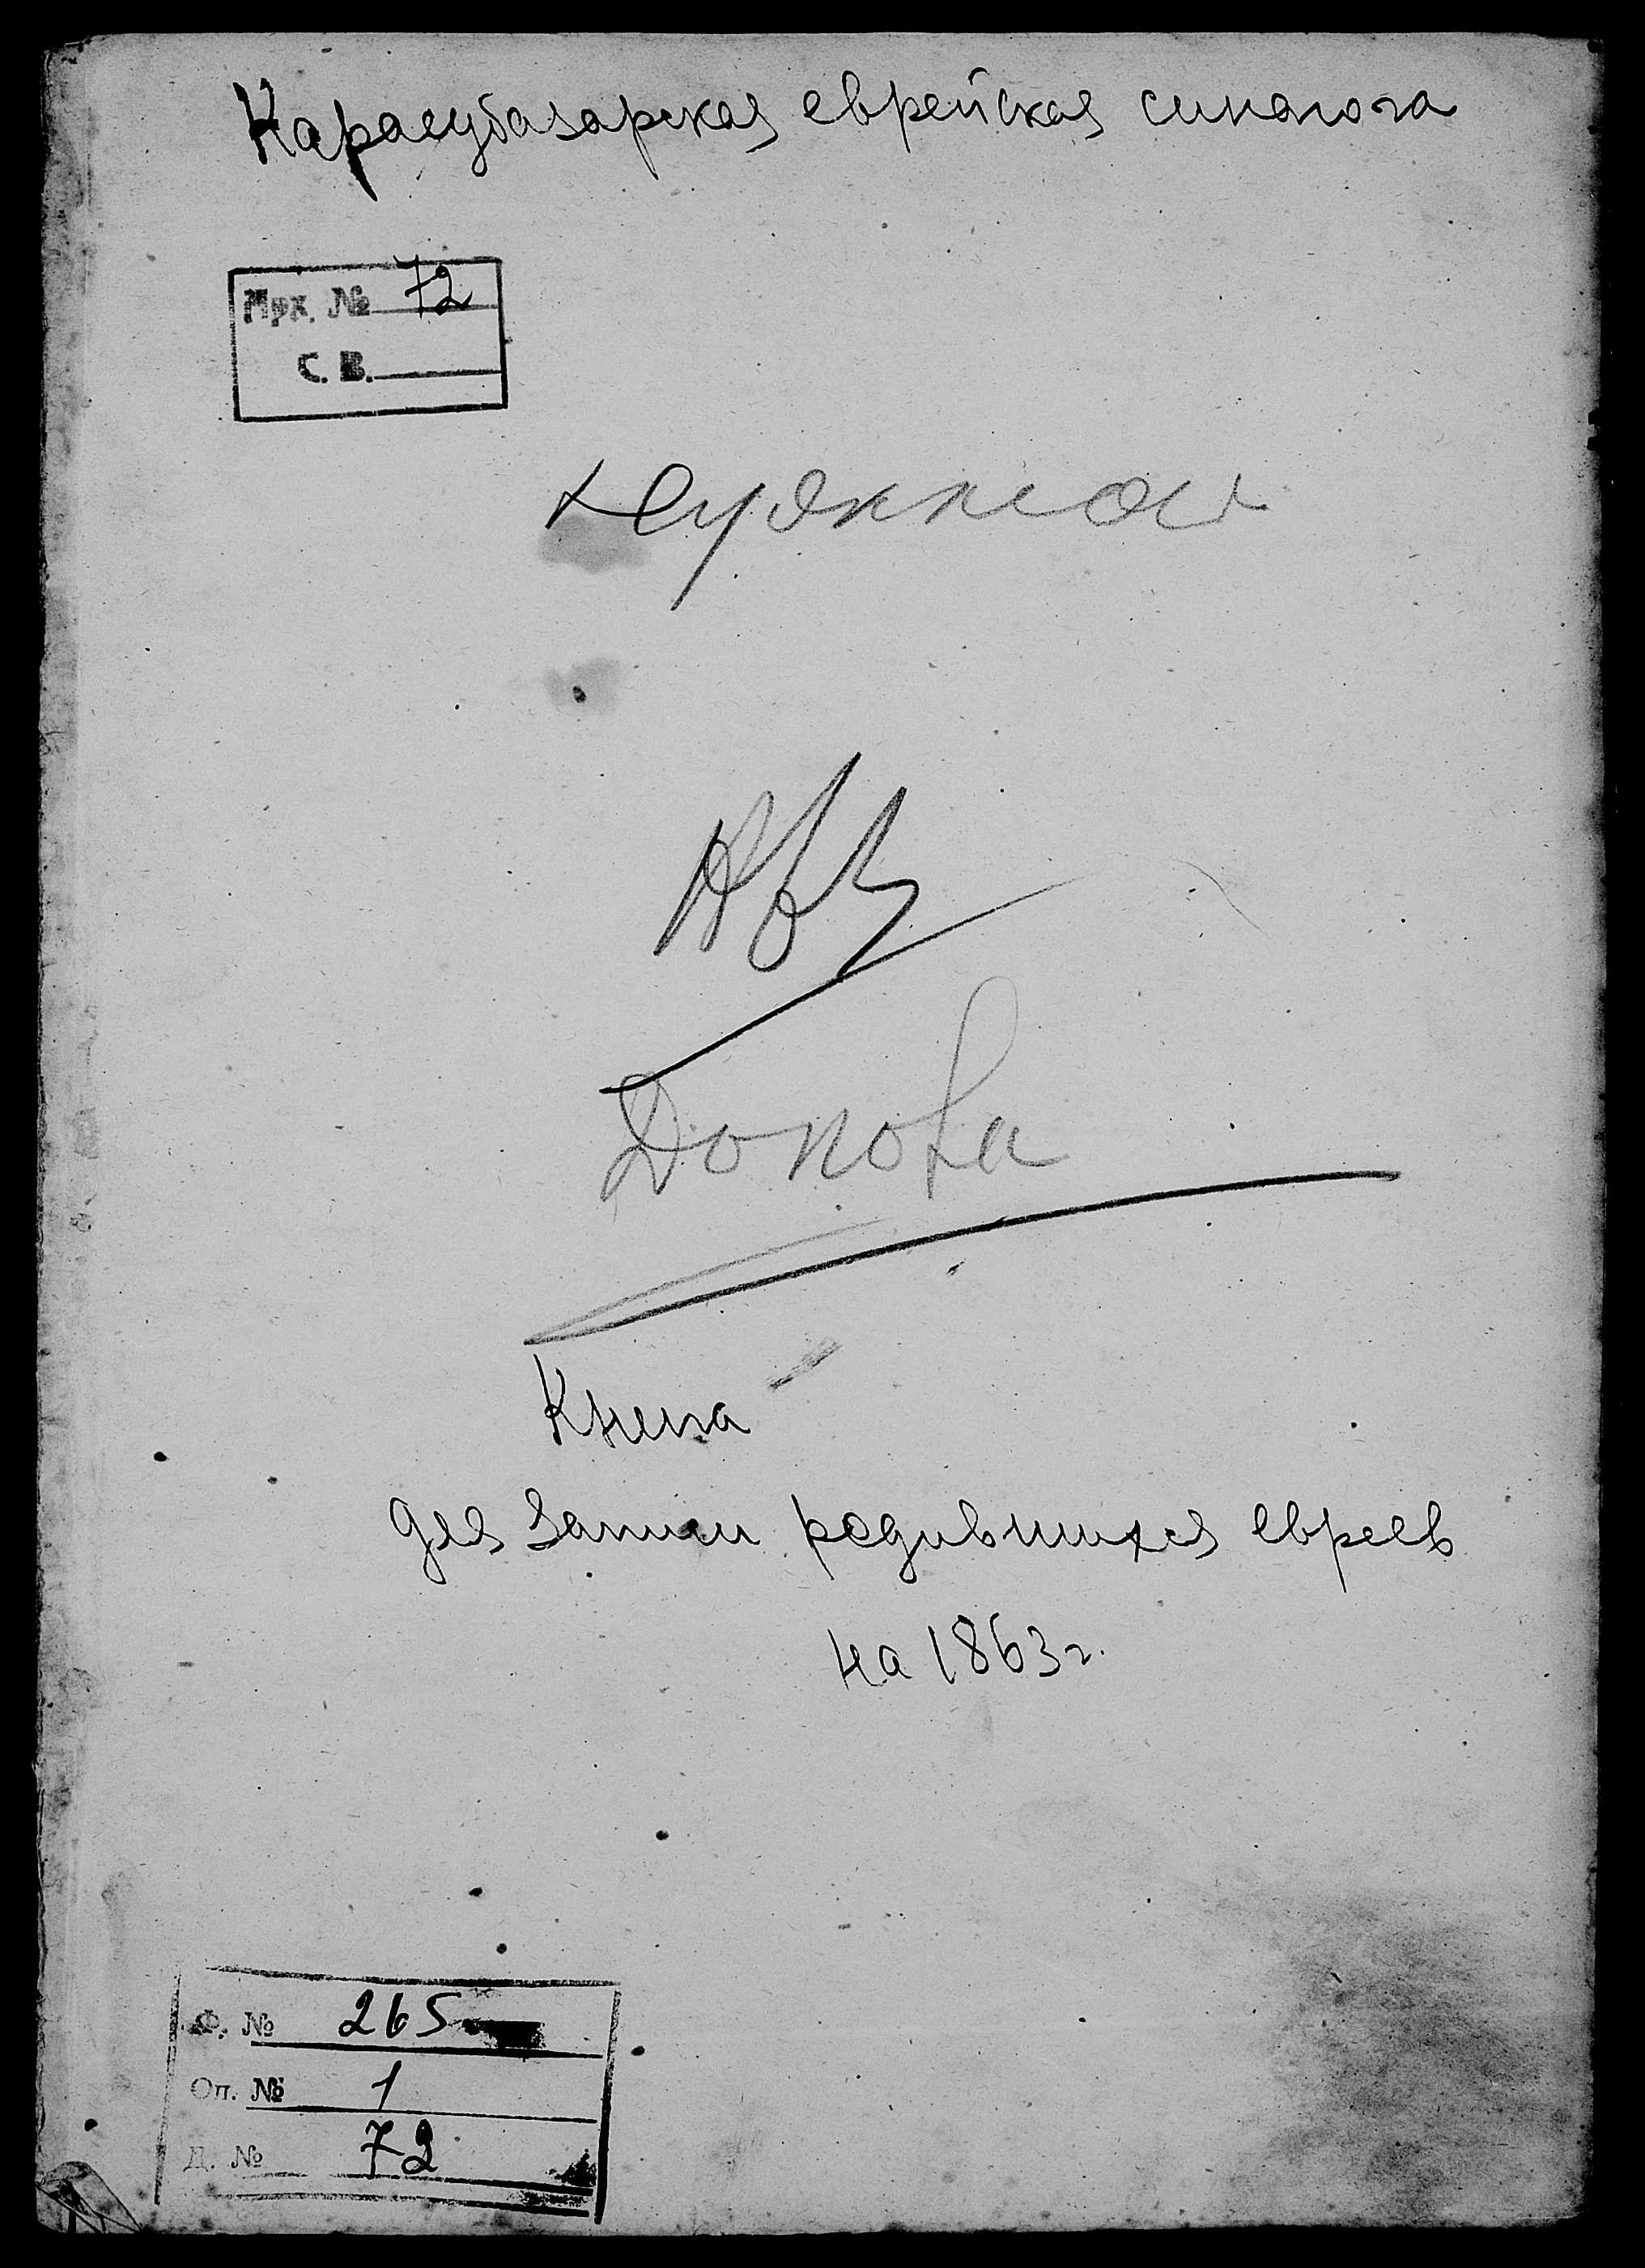 Карасубазарская еврейская синагога
Арх. № 72
С. В.
Книга
для записи родившихся евреев
на 1863 г.
Ф. № 265
Оп. № 1
Д. № 72